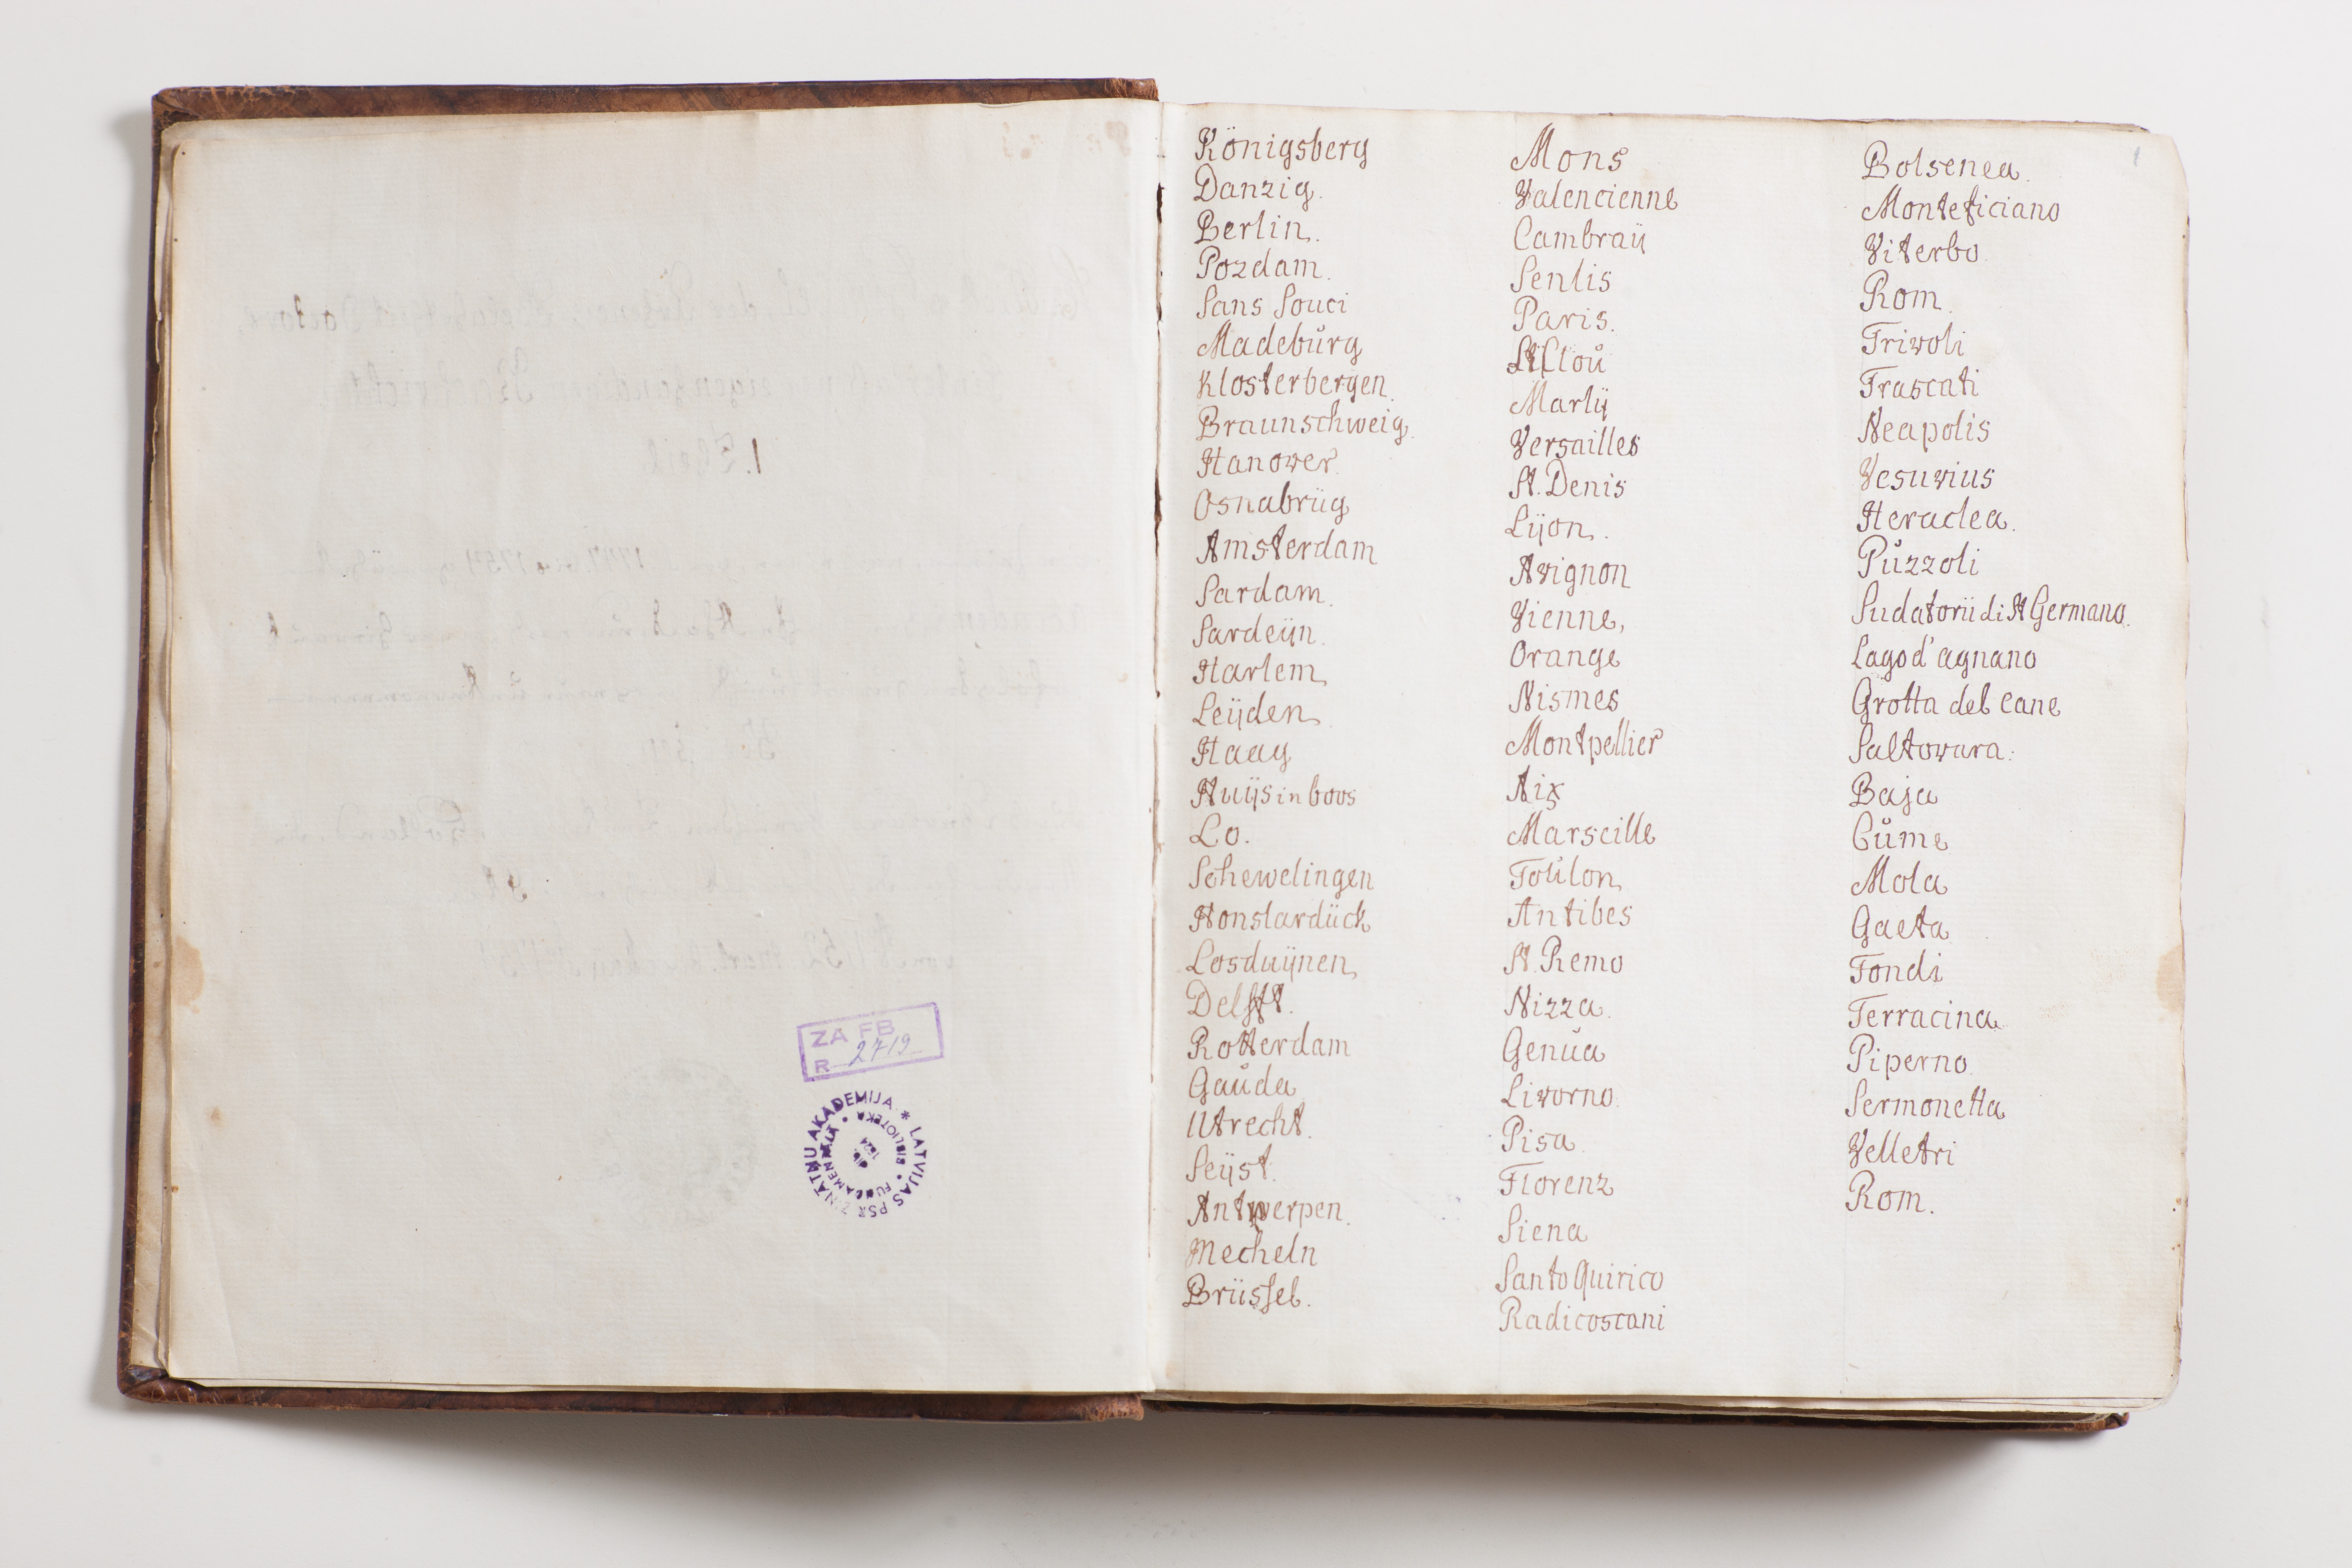 ZA FB
R 2719
LATVIJAS PSR ZINĀTŅU AKADEMIJA *
FUNDAMENTĀLĀ • BIBLIOTEKA •
dib.
1524
1
Königsberg
Danzig.
Berlin.
Pozdam.
Sans Souci
Madebůrg
Klosterbergen.
Braunschweig.
Hanover.
Osnabrüg
Amsterdam
Sardam.
Sardeÿn.
Harlem
Leÿden
Haag
Huÿs in boos
Lo.
Schewelingen
Honslardück
Losduÿnen
Delfft.
Rotterdam
Gaůda
Utrecht.
Seÿst.
Antwerpen.
Mecheln
Brüssel.
Mons
Valencienne
Cambraÿ
Senlis
Paris.
St Cloů
Marlÿ
Versailles
St. Denis
Lÿon.
Avignon
Vienne,
Orange
Nismes
Montpellier
Aix
Marseille
Toůlon
Antibes
St. Remo
Nizza.
Genůa
Livorno.
Pisa.
Florenz
Siena
Santo Quirico
Radicoscani
Bolsenea.
Monteficiano
Viterbo.
Rom.
Trivoli
Frascati
Neapolis
Vesuvius
Heraclea.
Půzzoli
Sudatorii di St Germano.
Lago d'agnano
Grotta del cane
Saltovara.
Baja
Cůme
Mola
Gaeta
Fondi
Terracina
Piperno.
Sermonetta
Velletri
Rom.